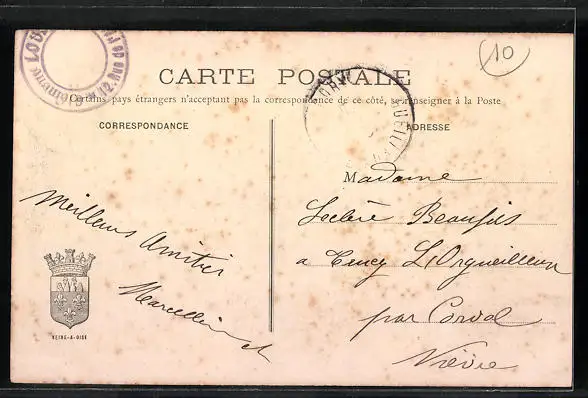 10
CARTE POSTALE
Certains pays étrangers n'acceptent pas la correspondance de ce côté, se renseigner à la Poste
CORRESPONDANCE
ADRESSE
Meilleurs Amitiés
Marcelline
Madame
Leclère Beaufils
a Trucy L'Orgueilleux
par Corvol
Nièvre
SEINE-&-OISE